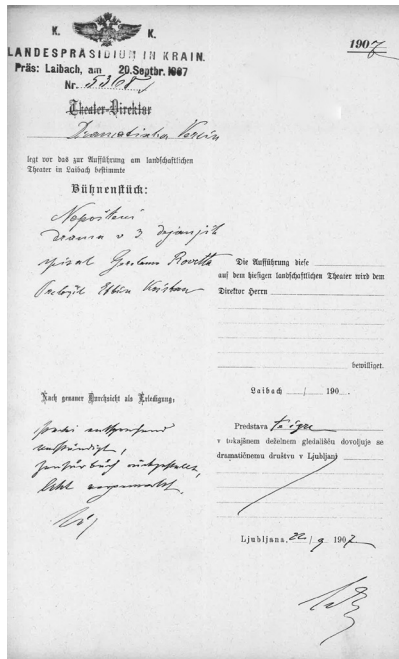 K. K.
1907
LANDESPRÄSIDIUM IN KRAIN.
Präs: Laibach, am 20. Septbr. 1907
Nr. 5368
Theater-Direktor
Dramatischer Verein
legt vor das zur Aufführung am landschaftlichen
Theater in Laibach bestimmte
Bühnenstück:
Nepošteni
drama v 3 dejanjih
spisal Gerolamo Rovetta
Preložil Etbin Kristan
Nach genauer Durchsicht als Erledigung:
Die Aufführung diese
auf dem hiesigen landschaftlichen Theater wird dem
Direktor Herrn
bewilliget.
Laibach / 190
Predstava te igre
v tokajšnem deželnem gledališču dovoljuje se
dramatičnemu društvu v Ljubljani
Ljubljana, 22/9 1907